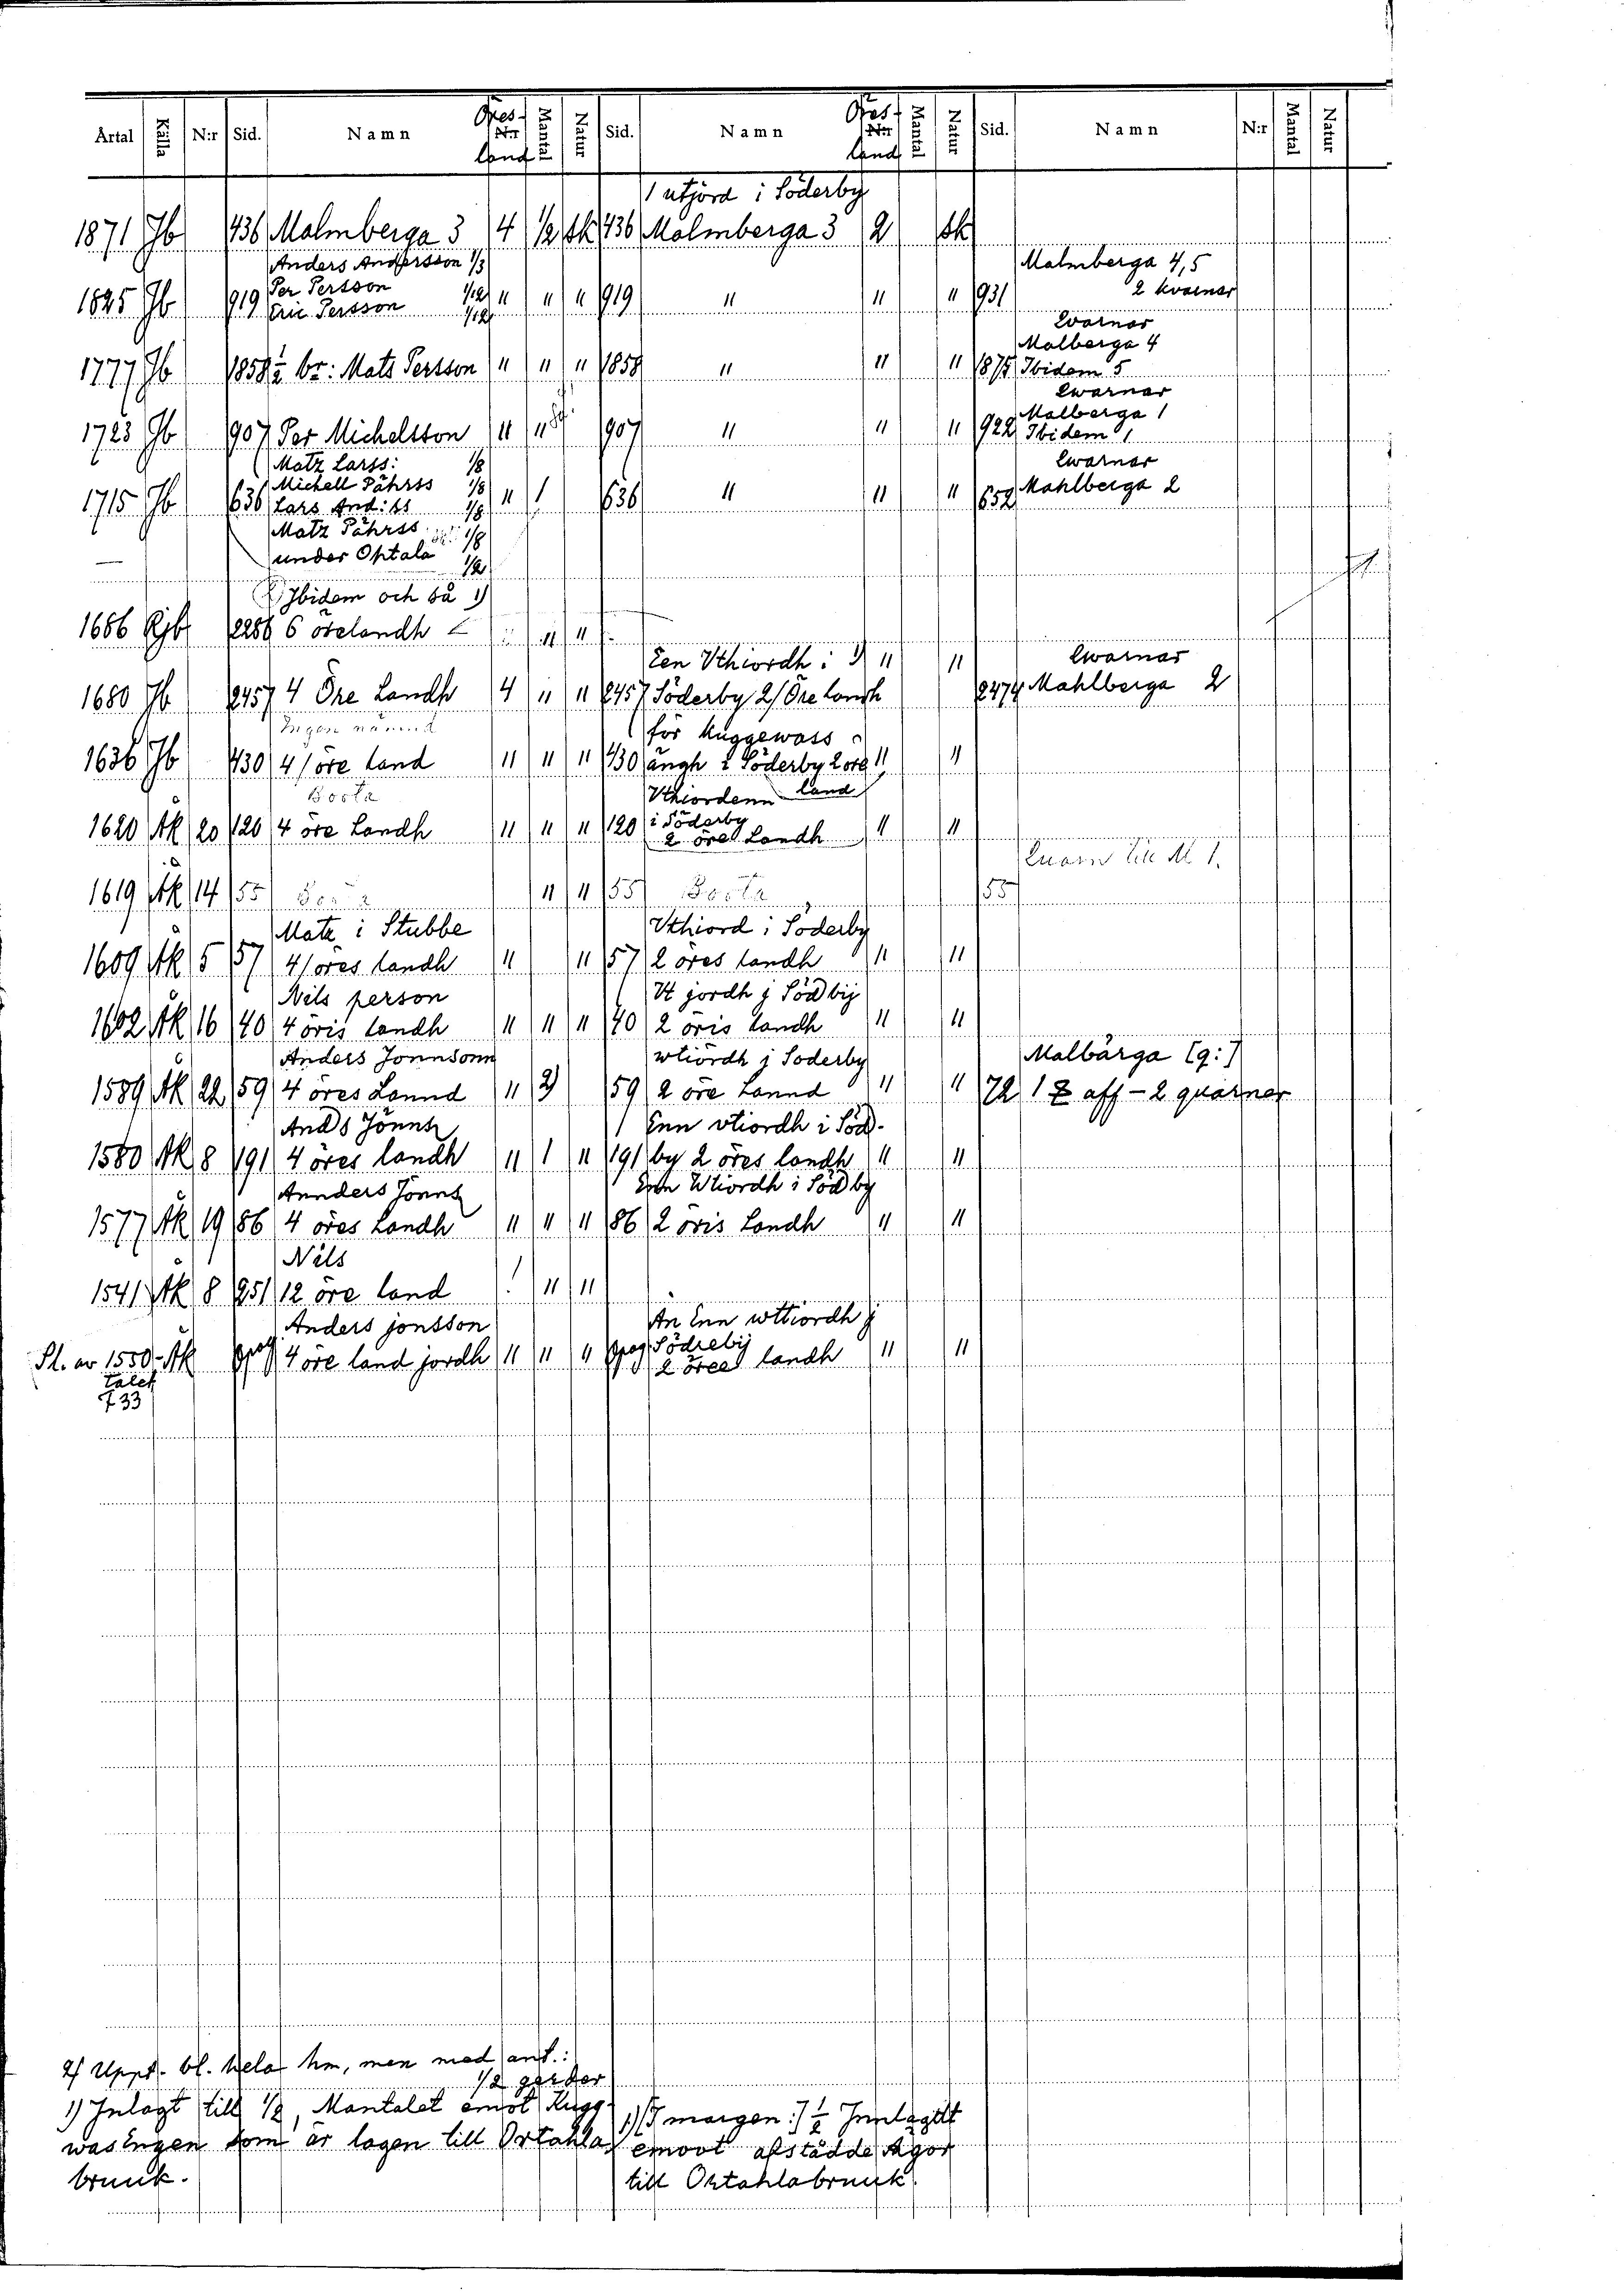 Årtal Källa N:r Sid. Namn Öres- land Mantal Natur Sid. Namn Öres- land Mantal Natur Sid. Namn N:r Mantal Natur
1 utjord i Söderby
1871 Jb 436 Malmberga 3 4 1/2 sk 436 Malmberga 3 2 sk
Anders Andersson 1/3 Malmberga 4,5
Per Persson 1/12 2 kvarnar
1825 Jb 919 Eric Persson 1/12 " " " 919 " " " 931
Qvarnar
Malberga 4
1777 Jb 1858 1/2 br: Mats Persson " " " 1858 " " " 1875 Ibidem 5
Qwarnar
Malberga 1
1723 Jb 907 Per Michelsson " " 907 " " " 922 Ibidem 1
Matz Larss: 1/8 Qwarnar
Michell Pährss 1/8
1715 Jb 636 Lars And:ss 1/8 " 1 636 " " " 652 Mahlberga 2
Matz Pährss 1/8
under Ohtala 1/2
Ibidem och så 1)
1686 Rjb 2286 6 örelandh " "
Een Vthiordh i 1) " " Qwarnar
1680 Jb 2457 4 Öre Landh 4 " " 2457 Söderby 2/Öre Landh 2474 Mahlberga 2
för Kuggewass
1636 Jb 430 4/öre land " " " 430 ängh i Söderby 2 öre " "
Bosta Vthiordenn land
i Söderby
1620 Åk 20 120 4 öre Landh " " " 120 2 öres Landh " "
1619 Åk 14 55 " " 55 Bosta 55
Matz i Stubbe Vthiord i Söderby
1609 Åk 5 57 4/öres landh " " 57 2 öres landh " "
Nils person Vt jordh j Södbij
1602 Åk 16 40 4 öris landh " " " 40 2 öris landh " "
Anders Jonnsonn wtiördh j Soderby Malbärga [q:]
1589 Åk 22 59 4 öres Lannd " 2) 59 2 öre Lannd " " 72 1 aff - 2 quarner
Ands Jönns Enn vtiordh i Söd-
1580 Åk 8 191 4 öres landh " 1 " 191 by 2 öres landh " "
Annders Jonns Enn Wtiordh i Söd by
1577 Åk 19 86 4 öres Landh " " " 86 2 öris Landh " "
Nils
1541 Åk 8 251 12 öre land ! " "
Anders jonsson An Enn wttiordh j
Sl. av 1550- Åk opag 4 öre land jordh " " " opag Södrebij " "
talet 2 örees landh
733
2) Uppt. bl. hela hm, men med ant.:
1/2 gerder
1) Inlagt till 1/2 Mantalet emot Kugg-
wasEngen som är lagen till Ortahla
bruuk.
1) [I margen:] 1/2 Innlagtt
emoot afstädde Ägor
till Ohtahlabruuk.